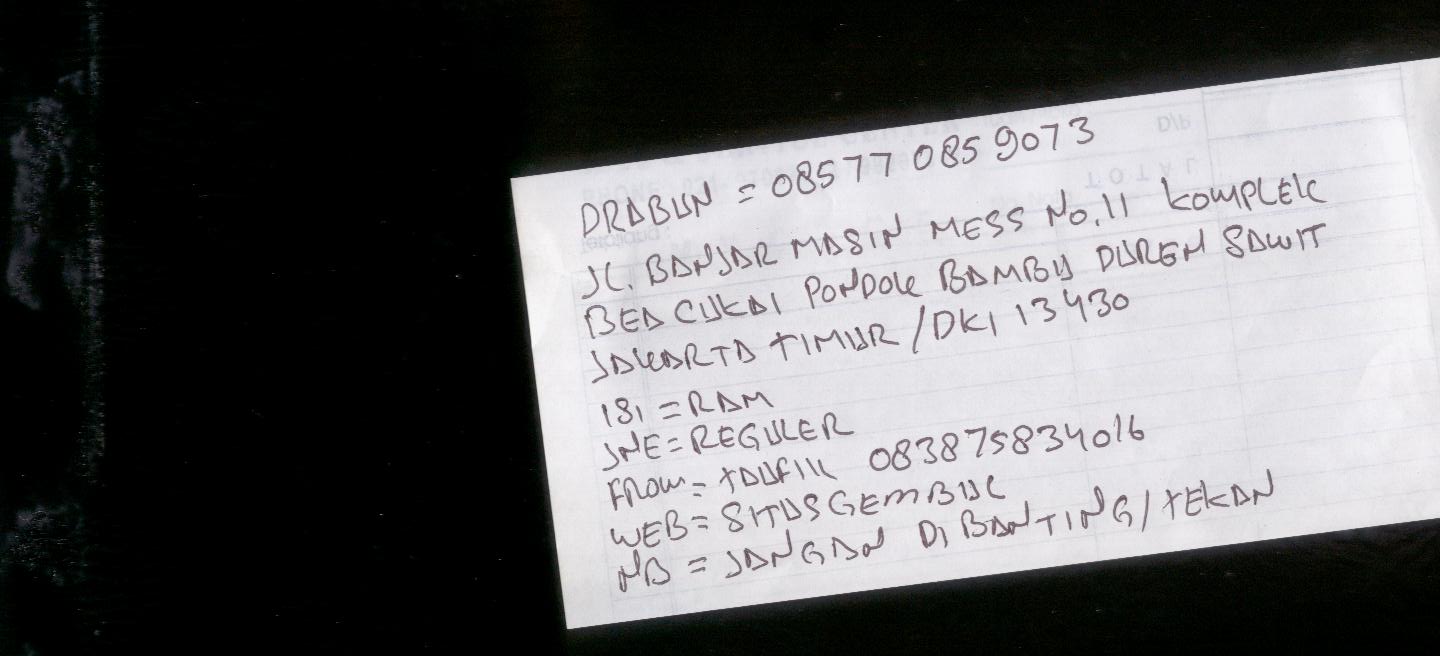 DRABUN = 08577 085 9073
JL. BANJAR MASIN MESS No.11 KOMPLEK
BEA CUKAI PONDOK BAMBU DUREN SAWIT
JAKARTA TIMUR / DKI 13430
ISI = RAM
JNE = REGULER
FROM = TAUFIK 083875834016
WEB = SITUSGEMBUL
NB = JANGAN DI BANTING / TEKAN
D/P
TOTAL